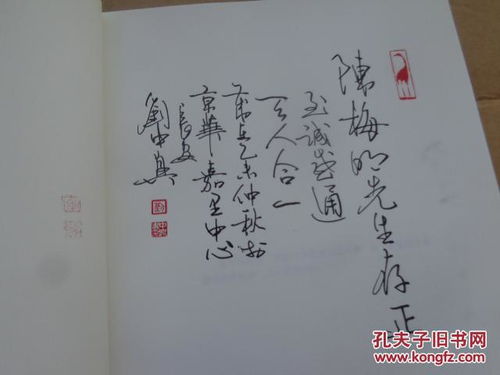 陳梅明先生存正
至誠感通
天人合一
乙未仲秋於
京華嘉里中心
長安
劉中興
孔夫子旧书网
www.kongfz.com